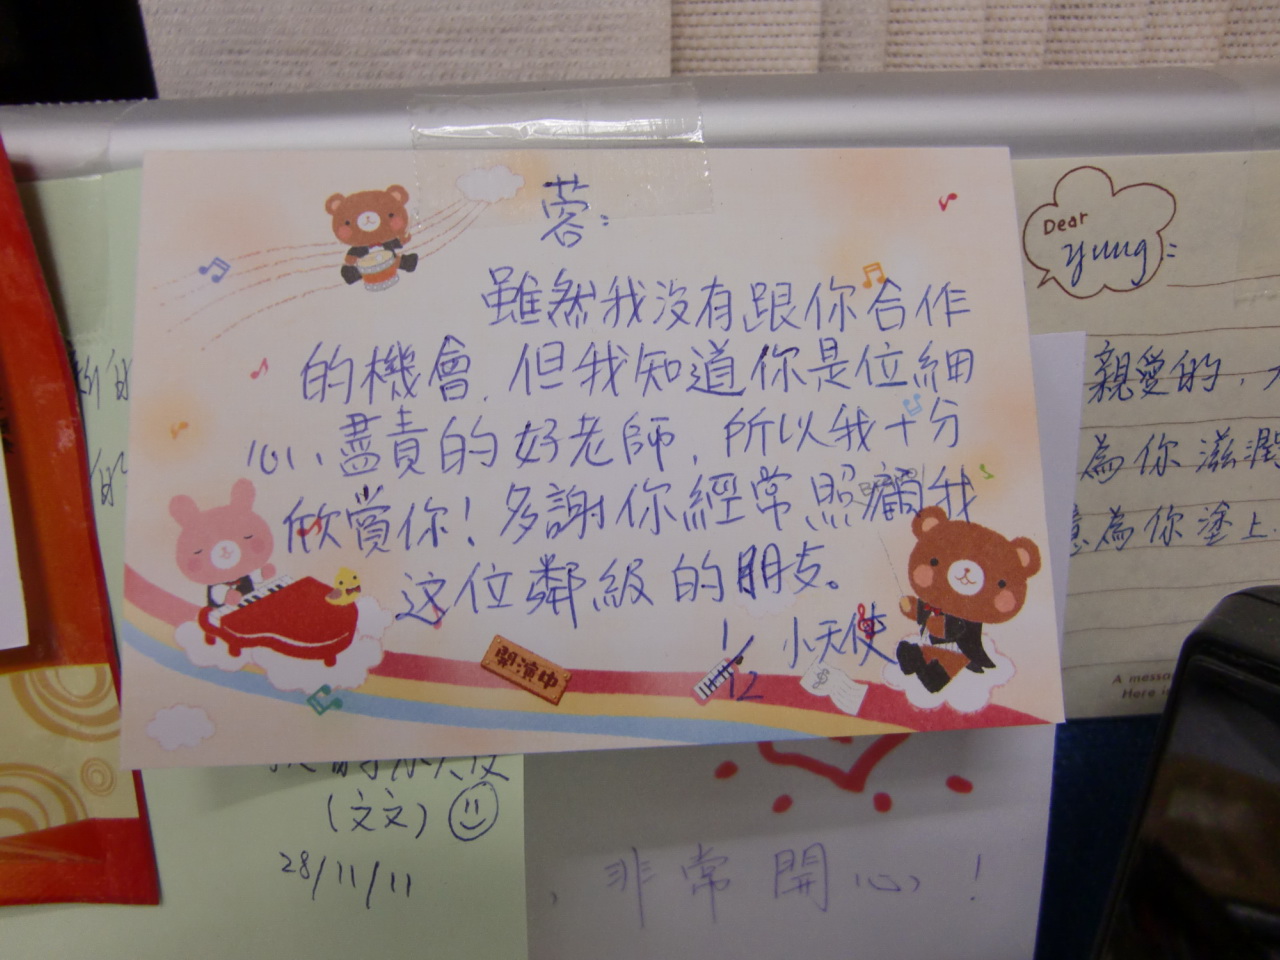 蓉：
雖然我沒有跟你合作
的機會，但我知道你是位細
心、盡責的好老師，所以我十分
欣賞你！多謝你經常照顧我
这位鄰級的朋友。
小天使
1/12
開演中
Dear
yung：
親愛的，
為你滋潤
為你塗上
A messa
Here i
(文文)
28/11/11
，非常開心！